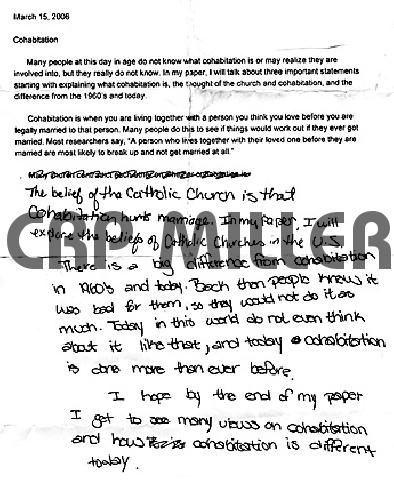 March 15, 2006
Cohabitation
Many people at this day in age do not know what cohabitation is or may realize they are
involved into, but they really do not know. In my paper, I will talk about three important statements
starting with explaining what cohabitation is, the thought of the church and cohabitation, and the
difference from the 1960's and today.
Cohabitation is when you are living together with a person you think you love before you are
legally married to that person. Many people do this to see if things would work out if they ever get
married. Most researchers say, "A person who lives together with their loved one before they are
married are most likely to break up and not get married at all."
The belief of the Catholic Church is that
Cohabitation hurts marriage. In my Paper, I will
explore the beliefs of Catholic Churches in the U.S.
CRP MILLER
There is a big difference from cohabitation
in 1960's and today. Back then people knew it
was bad for them, so they would not do it as
much. Today in this world do not even think
about it like that, and today cohabitation
is done more than ever before.
I hope by the end of my paper
I get to see many views on cohabitation
and how cohabitation is different
today.